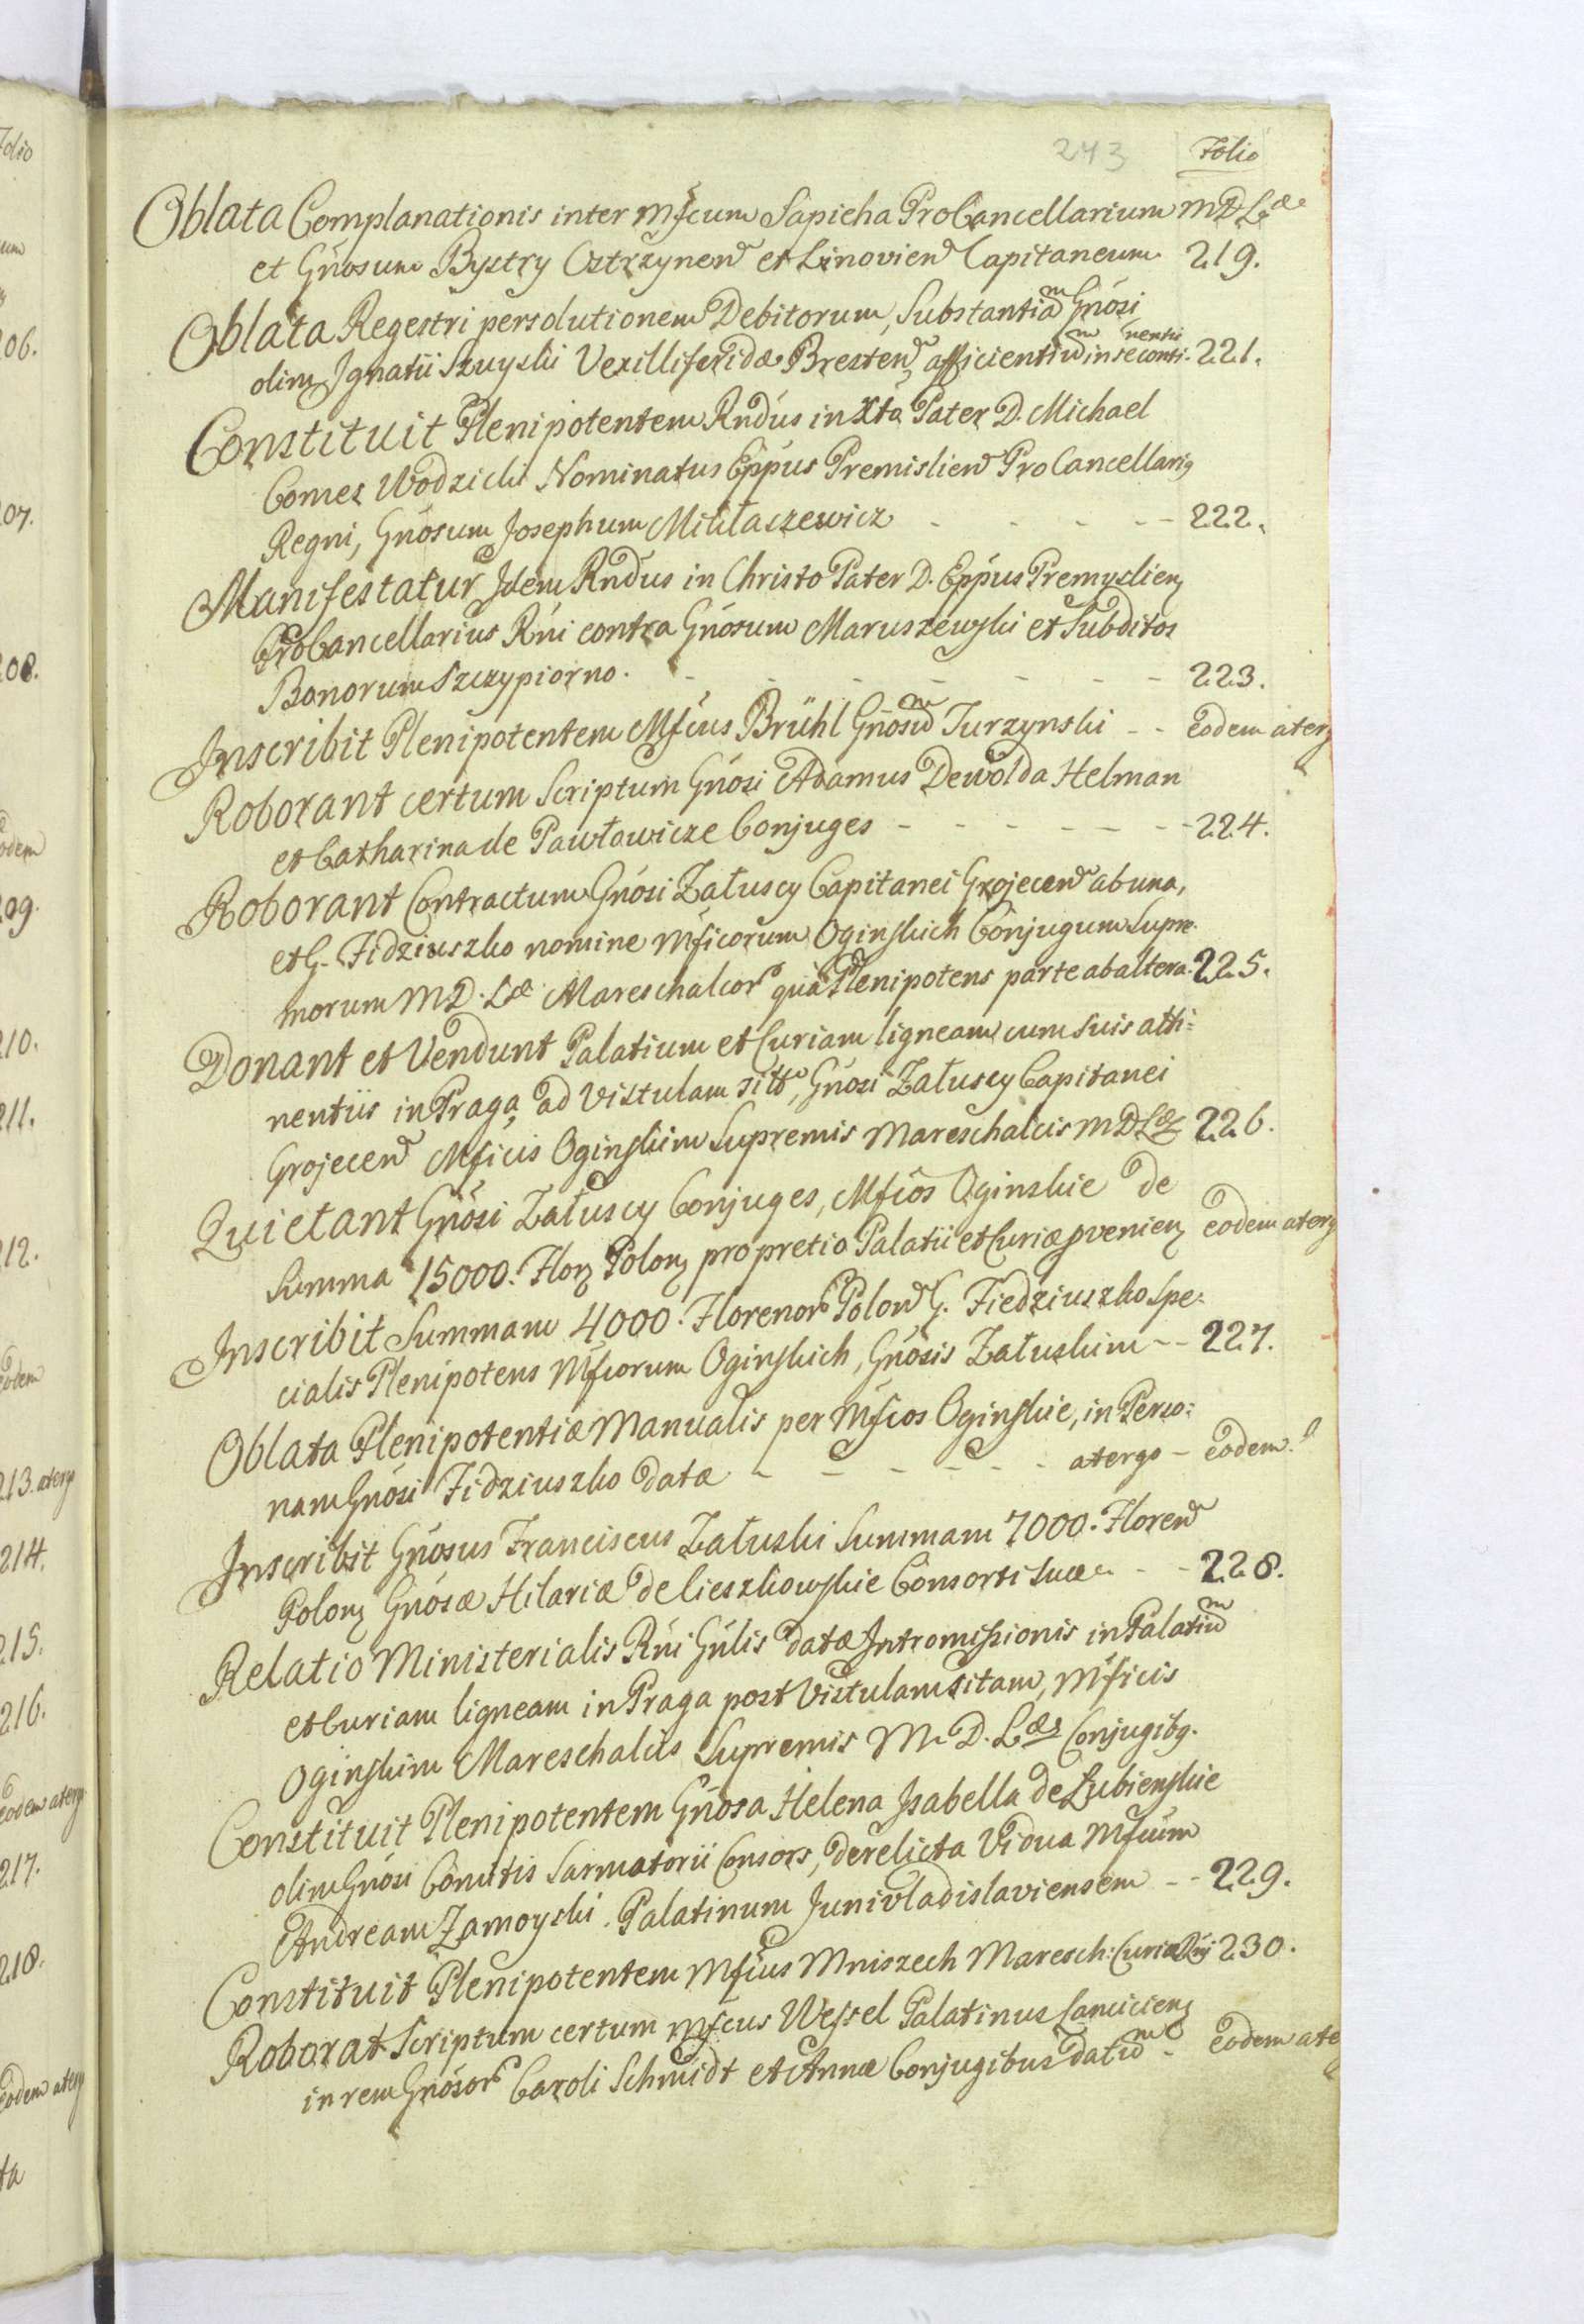 243 Folio
Oblata Complanationis inter Mfcum Sapieha ProCancellarium MDLæ
et Gnosum Bystry Ostrzynen et Linovien Capitaneum 219.
Oblata Regestri persolutionem Debitorum, Substantiam Gnosi
olim Ignatii Szuyski Vexilliferidæ Bresten afficientium in se conti- nentis 221.
Constituit Plenipotentem Rndus in Xto Pater D. Michael
Comes Wodzicki Nominatus Eppus Premislien ProCancellari9
Regni, Gnosum Josephum Mikitaszewicz - - - - 222.
Manifestatur Idem Rndus in Christo Pater D. Eppus Premyslien
ProCancellarius Rni contra Gnosum Maruszewski et Subditos
Bonorum Szczypiorno. - - - - - - - 223.
Inscribit Plenipotentem Mfcus Brühl Gnosum Turzynski - - Eodem aterg
Roborant certum Scriptum Gnosi Adamus Dewolda Helman
et Catharina de Pawłowicze Conjuges - - - - - - 224.
Roborant Contractum Gnosi Załuscy Capitanei Grojecen ab una,
et G. Fidziuszko nomine Mficorum Oginskich Conjugum Supre-
morum MD. Læ Mareschalcor qua Plenipotens parte ab altera. 225.
Donant et Vendunt Palatium et Curiam ligneam cum suis atti=
nentiis in Praga ad Vistulam sitt, Gnosi Załuscy Capitanei
Grojecen Mficis Oginskim Supremis Mareschalcis MDLæ 226.
Quietant Gnosi Załuscy Conjuges, Mfcos Oginskie de
Summa 15000. Flor Polon pro pretio Palatii et Curiæ pvenien eodem aterg
Inscribit Summam 4000. Florenor Polon G. Fiedziuszko Spe-
cialis Plenipotens Mfcorum Oginskich, Gnosis Załuskim - - 227.
Oblata Plenipotentiæ Manualis per Mfcos Oginskie, in Perso=
nam Gnosi Fidziuszko datæ - - - - - - atergo - eodem.
Inscribit Gnosus Franciscus Załuski Summam 7000. Floren
Polon Gnosæ Hilariæ de Cieszkowskie Consorti suæ - - 228.
Relatio Ministerialis Rni Gnlis datæ Intromissionis in Palatium
et Curiam ligneam in Praga post Vistulam sitam, Mficis
Oginskim Mareschalcis Supremis M. D. Læ Conjugibg.
Constituit Plenipotentem Gnosa Helena Isabella de Łubienskie
olim Gnosi Comitis Sarmatorii Consors, derelicta Vidua Mfcum
Andream Zamoyski. Palatinum Junivladislaviensem - - 229.
Constituit Plenipotentem Mfcus Mniszech Maresch: Curiæ Rni 230.
Roborat Scriptum certum Mfcus Wessel Palatinus Lancicien
in rem Gnosor Caroli Schmidt et Annæ Conjugibus datum - Eodem ate